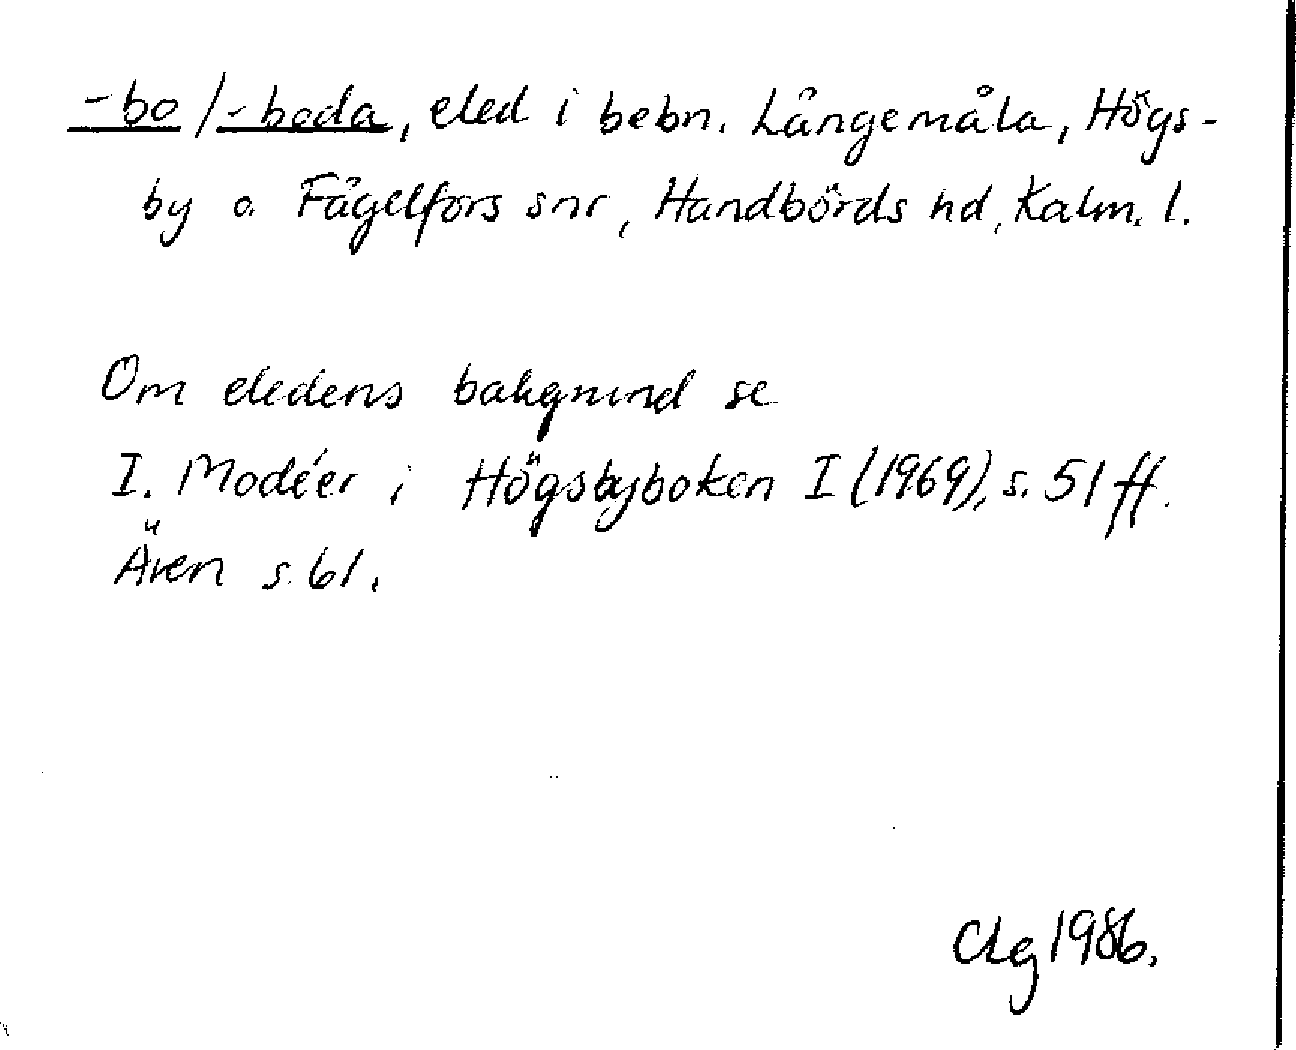 -bo/-boda, eled i bebn. Långemåla, Högs-
by o. Fågelfors snr, Handbörds hd, Kalm. l.
Om eledens bakgrund se
I. Modéer i Högsbyboken I (1969), s. 51 ff.
Även s. 61.
Clg 1986.